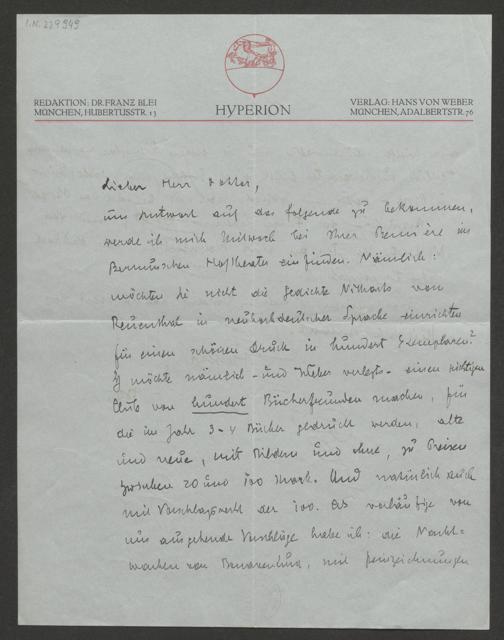 I.N. 229949
REDAKTION: DR. FRANZ BLEI
MÜNCHEN, HUBERTUSSTR. 13
HYPERION
VERLAG: HANS VON WEBER
MÜNCHEN, ADALBERTSTR. 76
Lieber Herr Doktor,
um Antwort auf das folgende zu bekommen,
werde ich mich Mittwoch bei Ihrer Première im
Hoftheater einfinden. Nämlich:
möchten Sie nicht die Gedichte Nitharts von
Reuenthal in neuhochdeutscher Sprache einrichten
für einen schönen Druck in hundert Exemplaren?
Ich möchte nämlich - und Weber verlegts - einen richtigen
Club von hundert Bücherfreunden machen, für
die im Jahr 3-4 Bücher gedruckt werden, alte
und neue, mit Bildern und ohne, zu Preisen
zwischen 20 und 100 Mark. Und natürlich auch
mit Vorschlagsrecht der 100. Als vorläufige von
uns ausgehende Vorschläge habe ich: die Nacht=
wachen von Bonaventura, mit Federzeichnungen